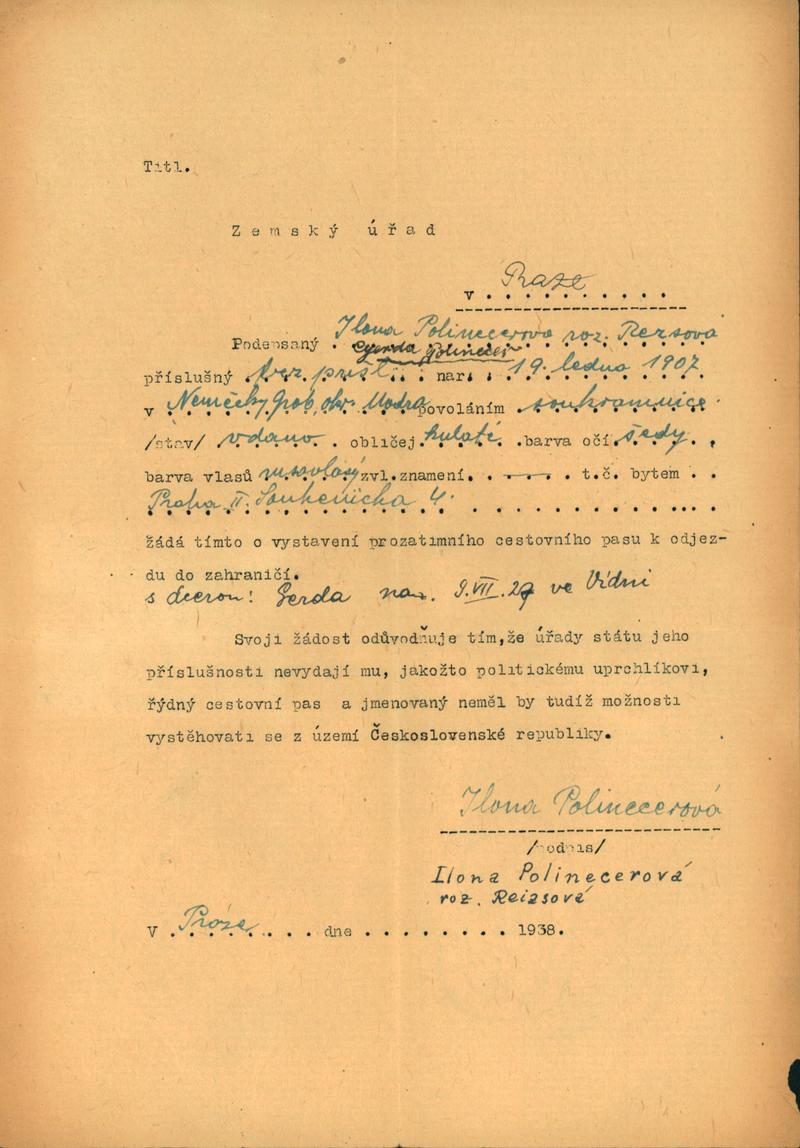 Titl.
Zemský úřad
v Praze
Podepsaný Ilona Polinecerová roz. Reisová
Gerda Polinecer
příslušný bez. přísl. nar. 19. ledna 1907
v Německý Grob, okr. Modra povoláním soukromnice
/stav/ vdana obličej kulatý barva očí šedy,
barva vlasů rusovlasý zvl.znamení. — t.č. bytem
Praha II. Soukenická 4.
žádá tímto o vystavení prozatimního cestovního pasu k odjez-
du do zahraničí.
s dcerou! Gerda nar. 9.VII.29 ve Vídni
Svoji žádost odůvodňuje tím,že úřady státu jeho
příslušnosti nevydají mu, jakožto politickému uprchlíkovi,
řýdný cestovní pas a jmenovaný neměl by tudíž možnosti
vystěhovati se z území Československé republiky.
Ilona Polinecerová
/podpis/
Ilona Polinecerová
roz. Reizsová
V Praze dne . . . . . . . . 1938.